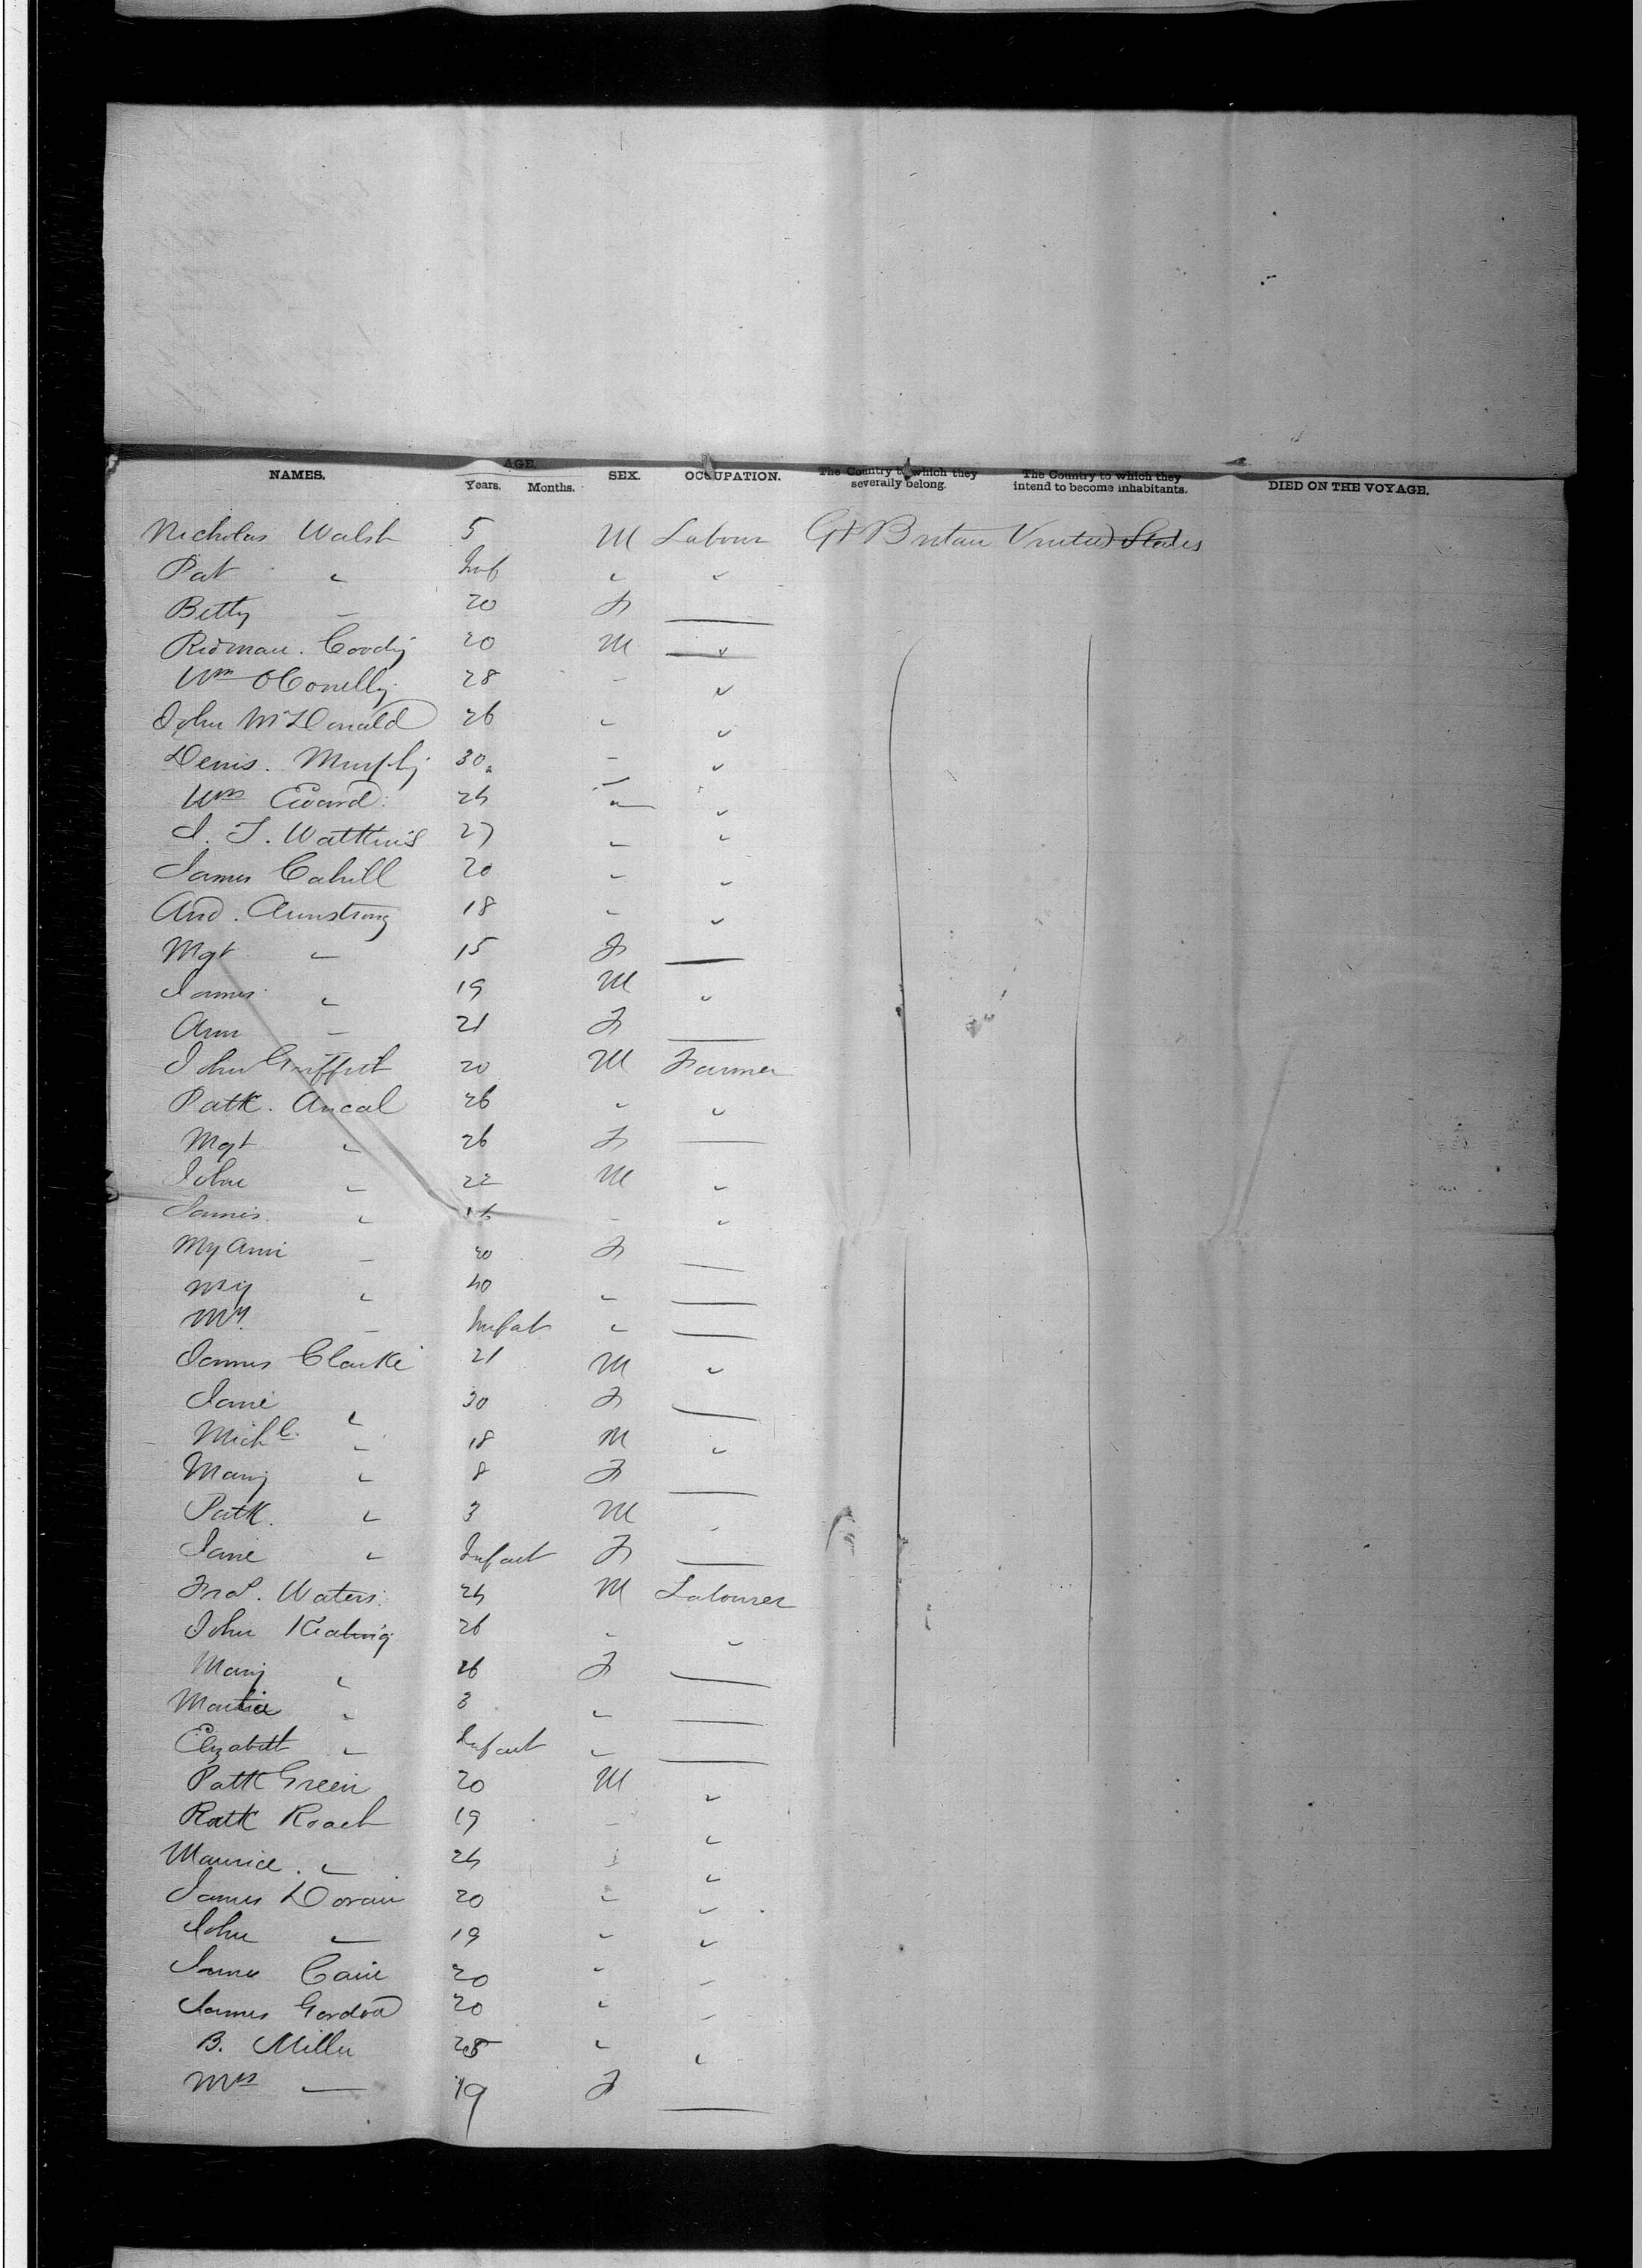 NAMES. AGE. Years. Months. SEX. OCCUPATION. The Country to which they severally belong. The Country to which they intend to become inhabitants. DIED ON THE VOYAGE.
Nicholas Walsh 5 M Labour Gt Britain United States
Pat " Inf " "
Betty " 20 F —
Coody 20 M "
Wm OConelly 28 " "
John McDonald 26 " "
Denis. Murphy 30 " "
Wm Evard 24 " "
J. T. Watkins 27 " "
James Cahill 20 " "
And. Armstrong 18 " "
Mgt " 15 F —
James " 19 M "
Ann " 21 F —
John Griffith 20 M Farmer
Patk. Ancal 26 " "
Mgt " 26 F —
John " 22 M "
James " " "
My Ann " 20 F —
My " 40 " —
My " Infat " —
James Clarke 21 M "
Jane " 30 F —
Michl. " 18 M "
Mary " 8 F —
Patk. " 3 M "
Jane " Infant F —
Waters 24 M Labourer
John Keating 26 " "
Mary " 26 F —
" 3 " —
Elizabeth " Infant " —
Patk Green 20 M "
Patk Roach 19 " "
Maurice " 24 " "
James Doran 20 " "
John " 19 " "
James Cain 20 " "
James Gordon 20 " "
B. Miller 28 " "
Mrs — 19 F —